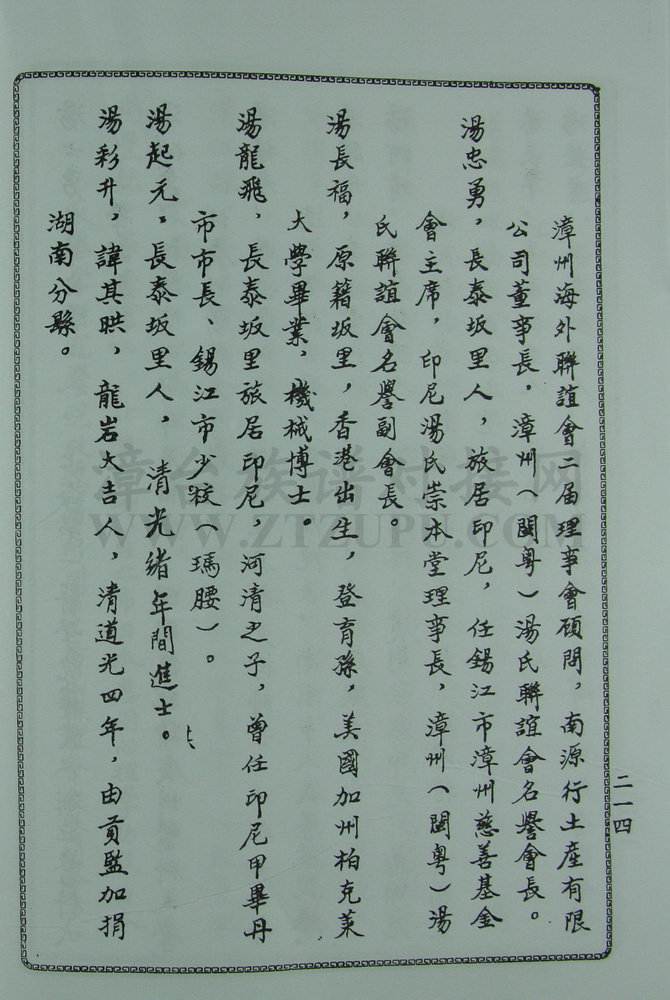 漳州海外聯誼會二届理事會顧問，南源行土產有限
公司董事長，漳州（閩粵）湯氏聯誼會名譽會長。
湯忠勇，長泰坂里人，旅居印尼，任錫江市漳州慈善基金
會主席，印尼湯氏崇本堂理事長，漳州（閩粵）湯
氏聯誼會名譽副會長。
湯長福，原籍坂里，香港出生，登育孫，美國加州柏克萊
大學畢業，機械博士。
湯龍飛、長泰坂里旅居印尼，河清之子，曾任印尼甲畢丹
市市長、錫江市少校（瑪腰）。
湯起元。長泰坂里人，清光緒年間進士。
湯彩升，諱其㫟，龍岩大吉人，清道光四年，由貢監加捐
湖南分縣。
二一四
漳台族谱对接网
WWW.ZTZUPU.COM